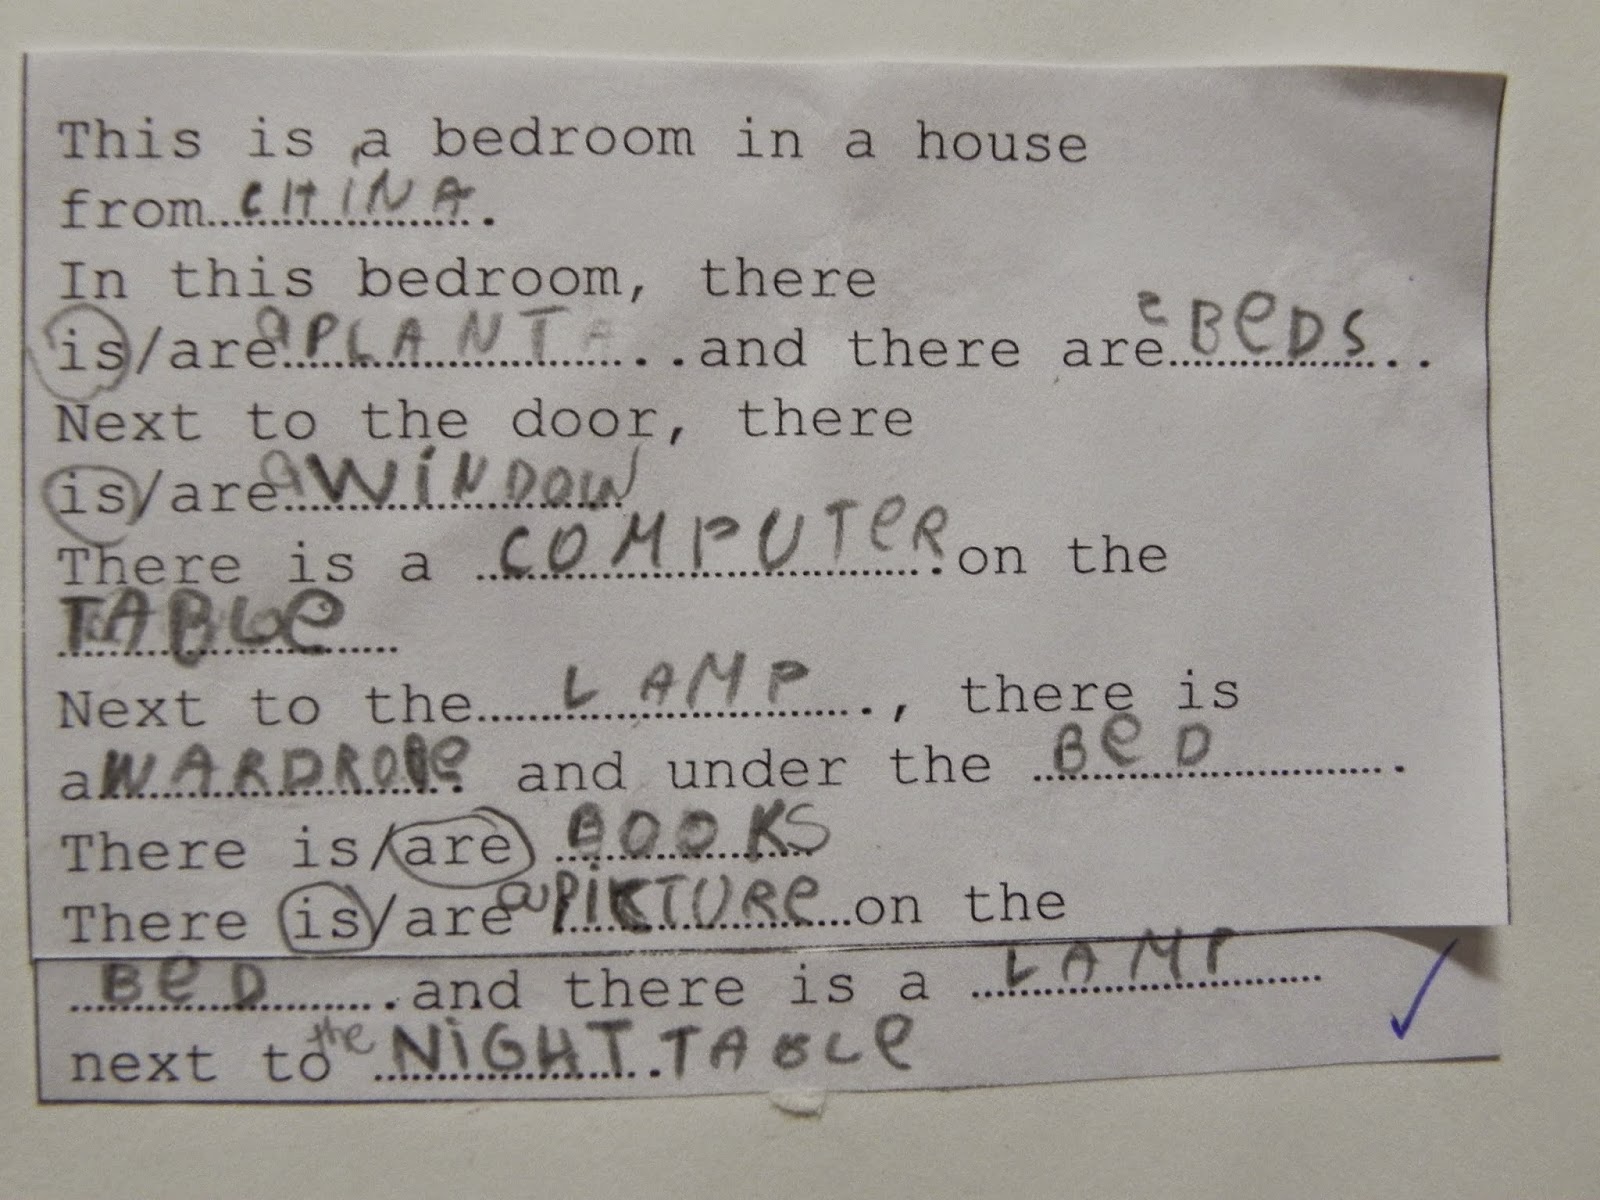 This is a bedroom in a house
from CHINA.
In this bedroom, there
is/are a PLANT...and there are 2 BeDS..
Next to the door, there
is/are a WiNDOW
There is a COMPUTeR.on the
TABLe
Next to the LAMP., there is
a WARDROBe. and under the BeD.
There is/are BOOKS
There is/are a PiKTURe...on the
BeD.and there is a LAMP
next to the NiGHT.TABLe